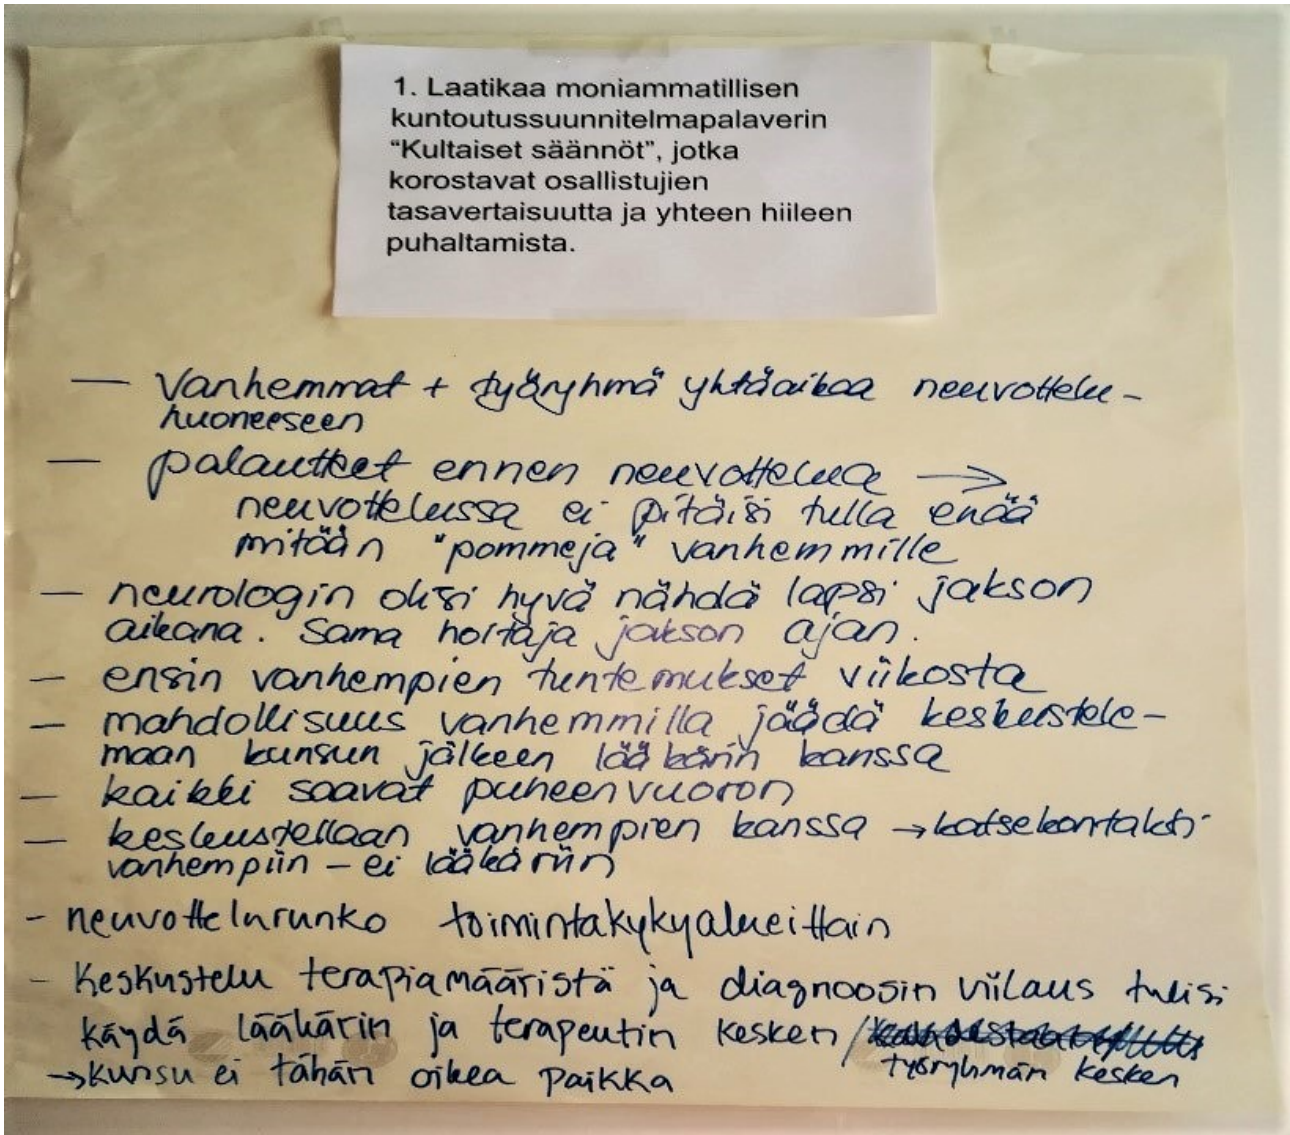 1. Laatikaa moniammatillisen
kuntoutussuunnitelmapalaverin
“Kultaiset säännöt”, jotka
korostavat osallistujien
tasavertaisuutta ja yhteen hiileen
puhaltamista.
— Vanhemmat + työryhmä yhtäaikaa neuvottelu-
huoneeseen
— palautteet ennen neuvottelua →
neuvottelussa ei pitäisi tulla enää
mitään "pommeja" vanhemmille
— neurologin olisi hyvä nähdä lapsi jakson
aikana. Sama hoitaja jakson ajan.
— ensin vanhempien tuntemukset viikosta
— mahdollisuus vanhemmilla jäädä keskustele-
maan kunsun jälkeen lääkärin kanssa
— kaikki saavat puheenvuoron
— keskustellaan vanhempien kanssa → katsekontakti
vanhempiin – ei lääkäriin
- neuvottelurunko toimintakykyalueittain
- Keskustelu terapiamääristä ja diagnoosin viilaus tulisi
käydä lääkärin ja terapeutin kesken /
työryhmän kesken
→ kunsu ei tähän oikea paikka